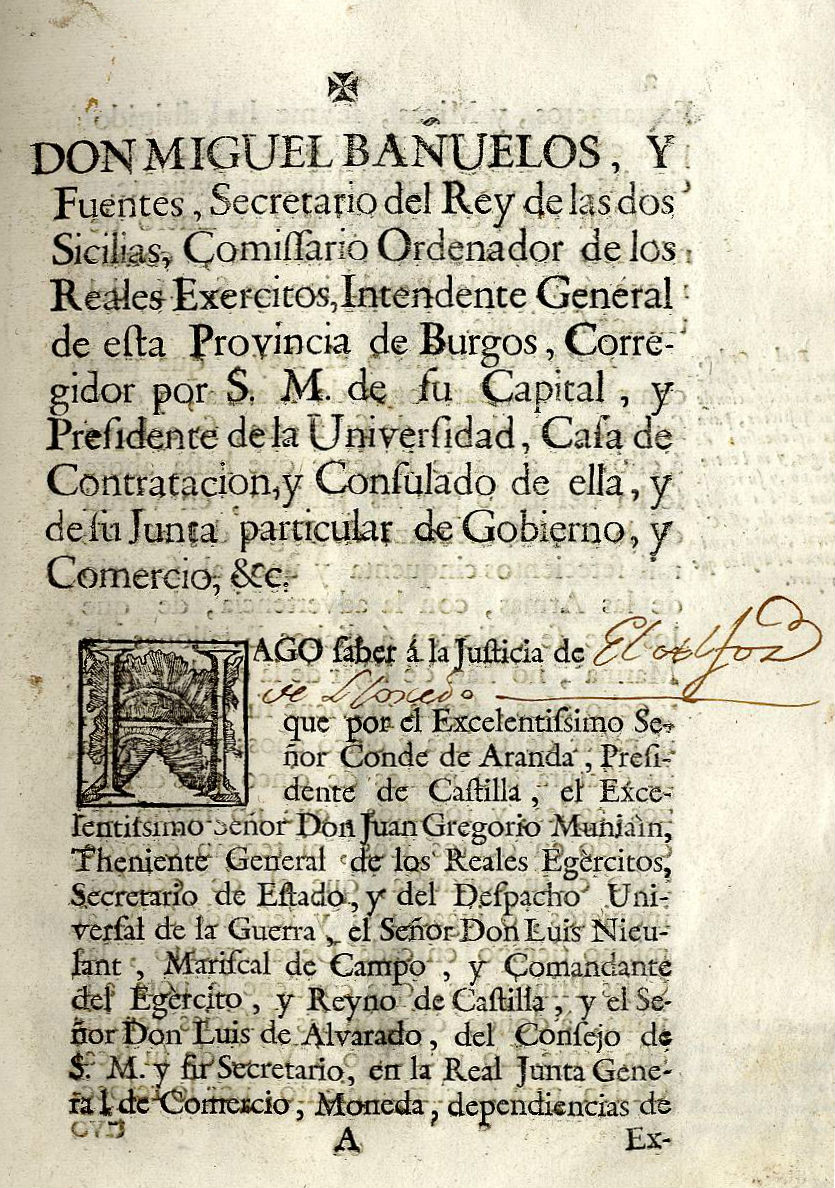 ✠
DON MIGUEL BAÑUELOS, Y
Fuentes, Secretario del Rey de las dos
Sicilias, Comiſſario Ordenador de los
Reales Exercitos, Intendente General
de eſta Provincia de Burgos, Corre-
gidor por S. M. de ſu Capital, y
Preſidente de la Univerſidad, Caſa de
Contratacion, y Conſulado de ella, y
de ſu Junta particular de Gobierno, y
Comercio, &c.
HAGO ſaber á la Juſticia de
de
que por el Excelentiſsimo Se-
ñor Conde de Aranda, Preſi-
dente de Caſtilla, el Exce-
lentiſsimo Señor Don Juan Gregorio Muniain,
Theniente General de los Reales Egercitos,
Secretario de Eſtado, y del Deſpacho Uni-
verſal de la Guerra, el Señor Don Luis Nieu-
lant, Mariſcal de Campo, y Comandante
del Egercito, y Reyno de Caſtilla, y el Se-
ñor Don Luis de Alvarado, del Conſejo de
S. M. y ſu Secretario, en la Real Junta Gene-
ral de Comercio, Moneda, dependiencias de
A Ex-